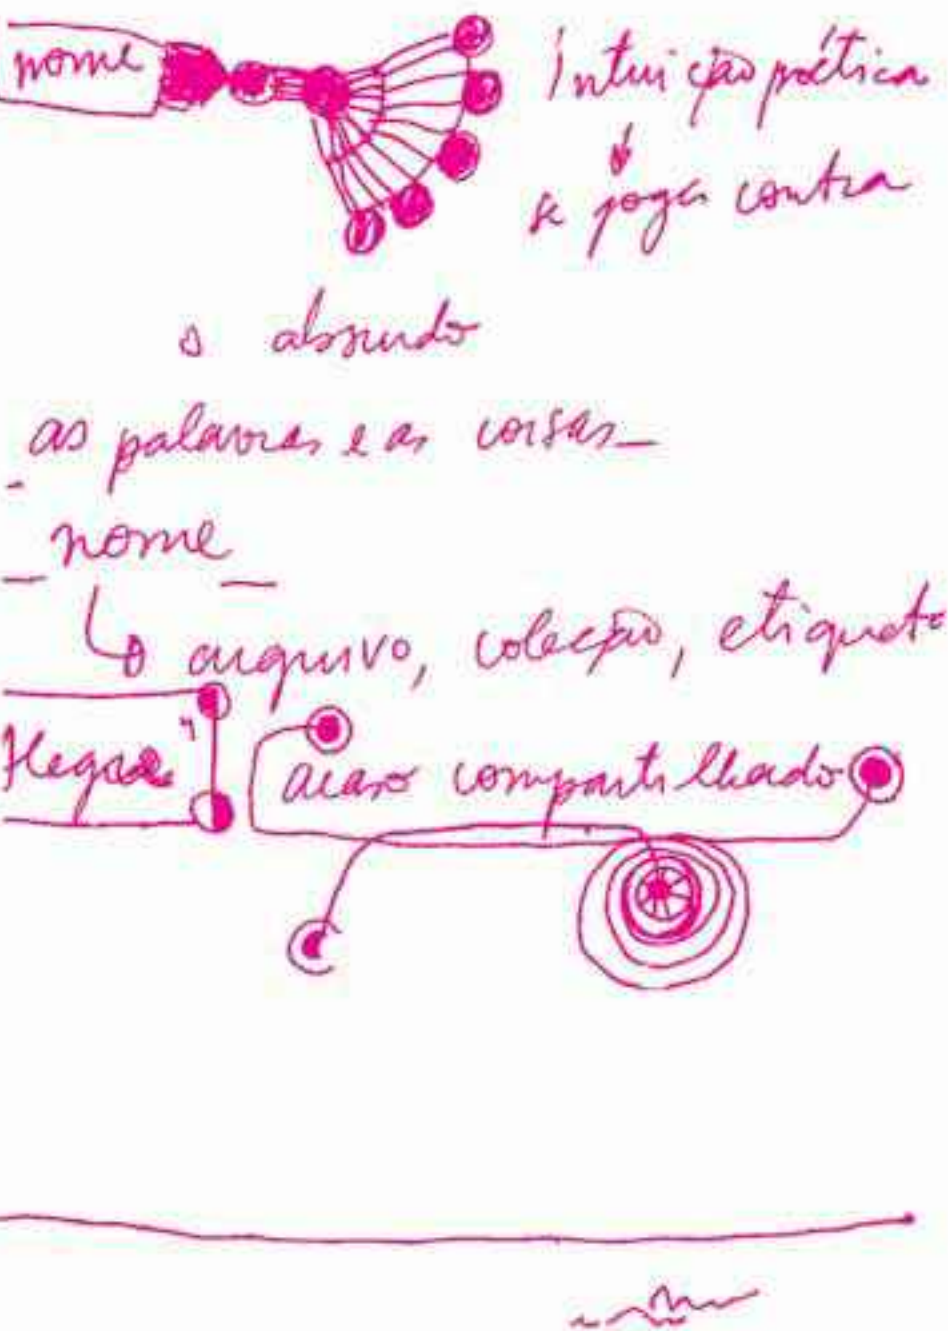 nome Intuição poética
se joga contra
o absurdo
as palavras e as coisas
nome
arquivo, coleção, etiqueta
acaso compartilhado